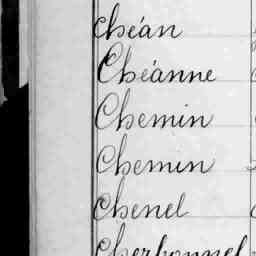 Chéan
Chéanne
Chemin
Chemin
Chenel
Cherbonnel